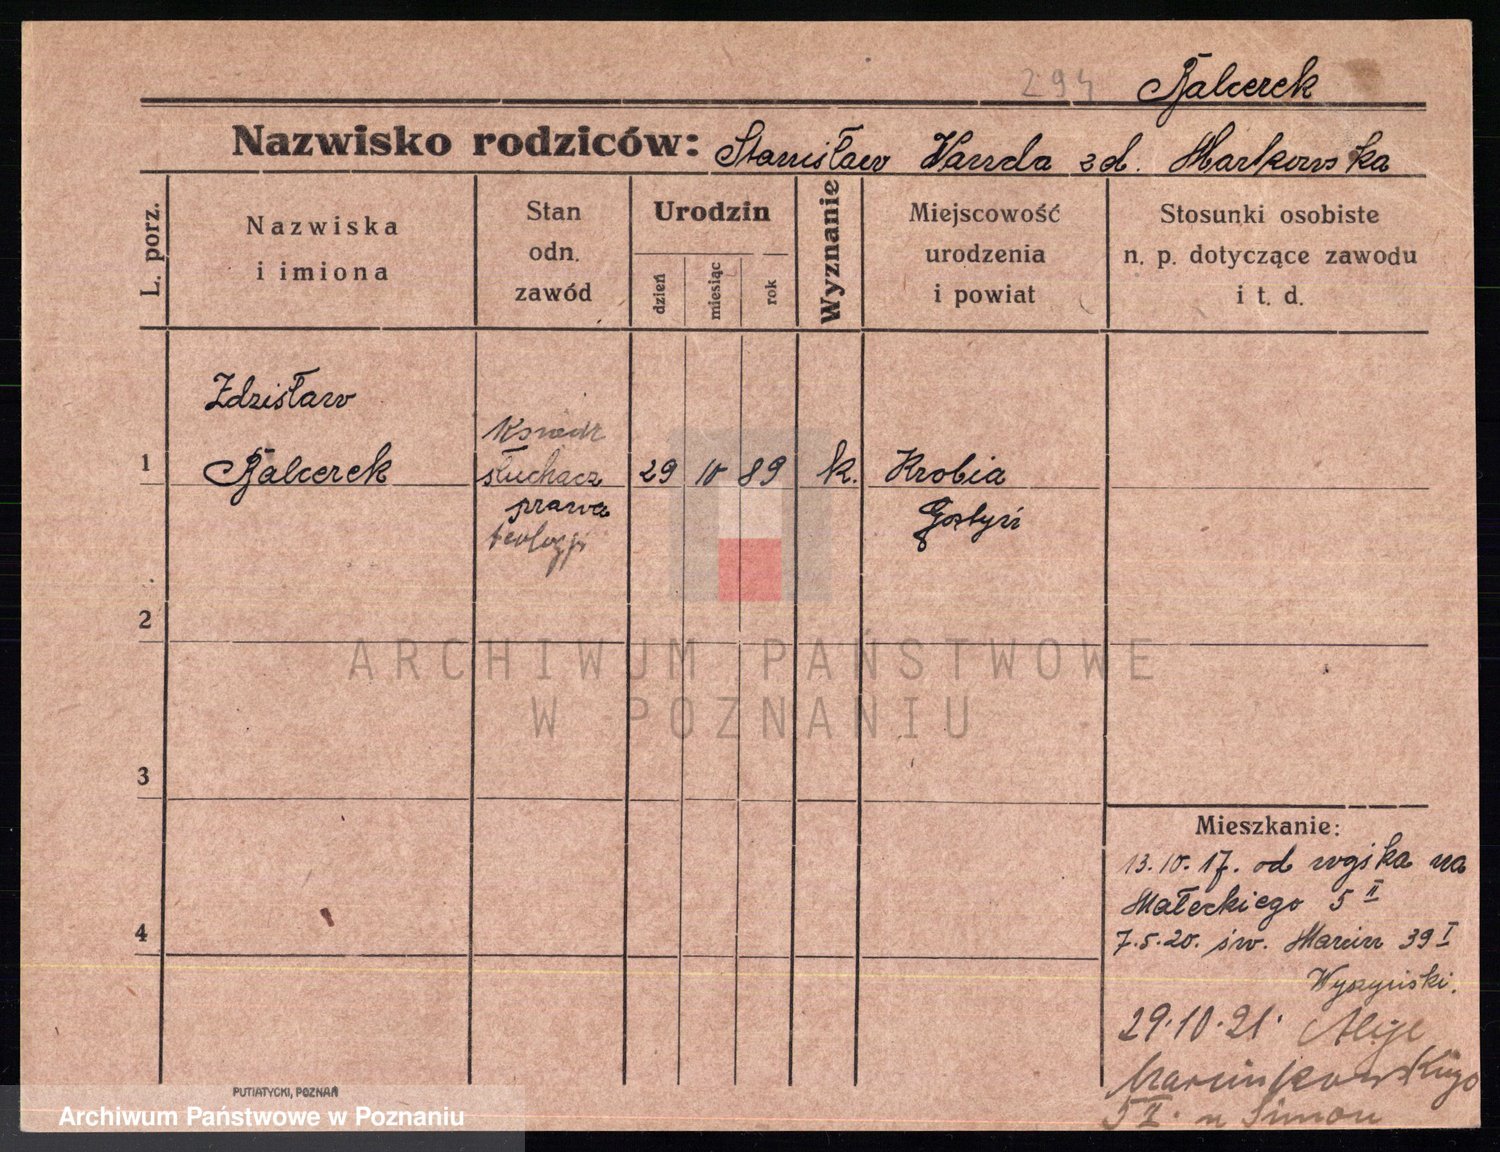 294 Balcerek
Nazwisko rodziców: Stanisław Wanda zd. Markowska
L. porz.
Nazwiska
i imiona
Stan
odn.
zawód
Urodzin
dzień
miesiąc
rok
Wyznanie
Miejscowość
urodzenia
i powiat
Stosunki osobiste
n. p. dotyczące zawodu
i t. d.
Zdzisław
1 Balcerek
Ksiądz
słuchacz
prawa
teologji
29 10 89 k. Krobia
Gostyń
2
ARCHIWUM PAŃSTWOWE
W POZNANIU
3
4
Mieszkanie:
13.10.17. od wojska na
Małeckiego 5 II
7.5.20. św. Marcin 39 I
Wyszyński.
29.10.21. Aleje
Marcinkowskiego
5 II. u Simon
PUTIATYCKI, POZNAŃ
Archiwum Państwowe w Poznaniu